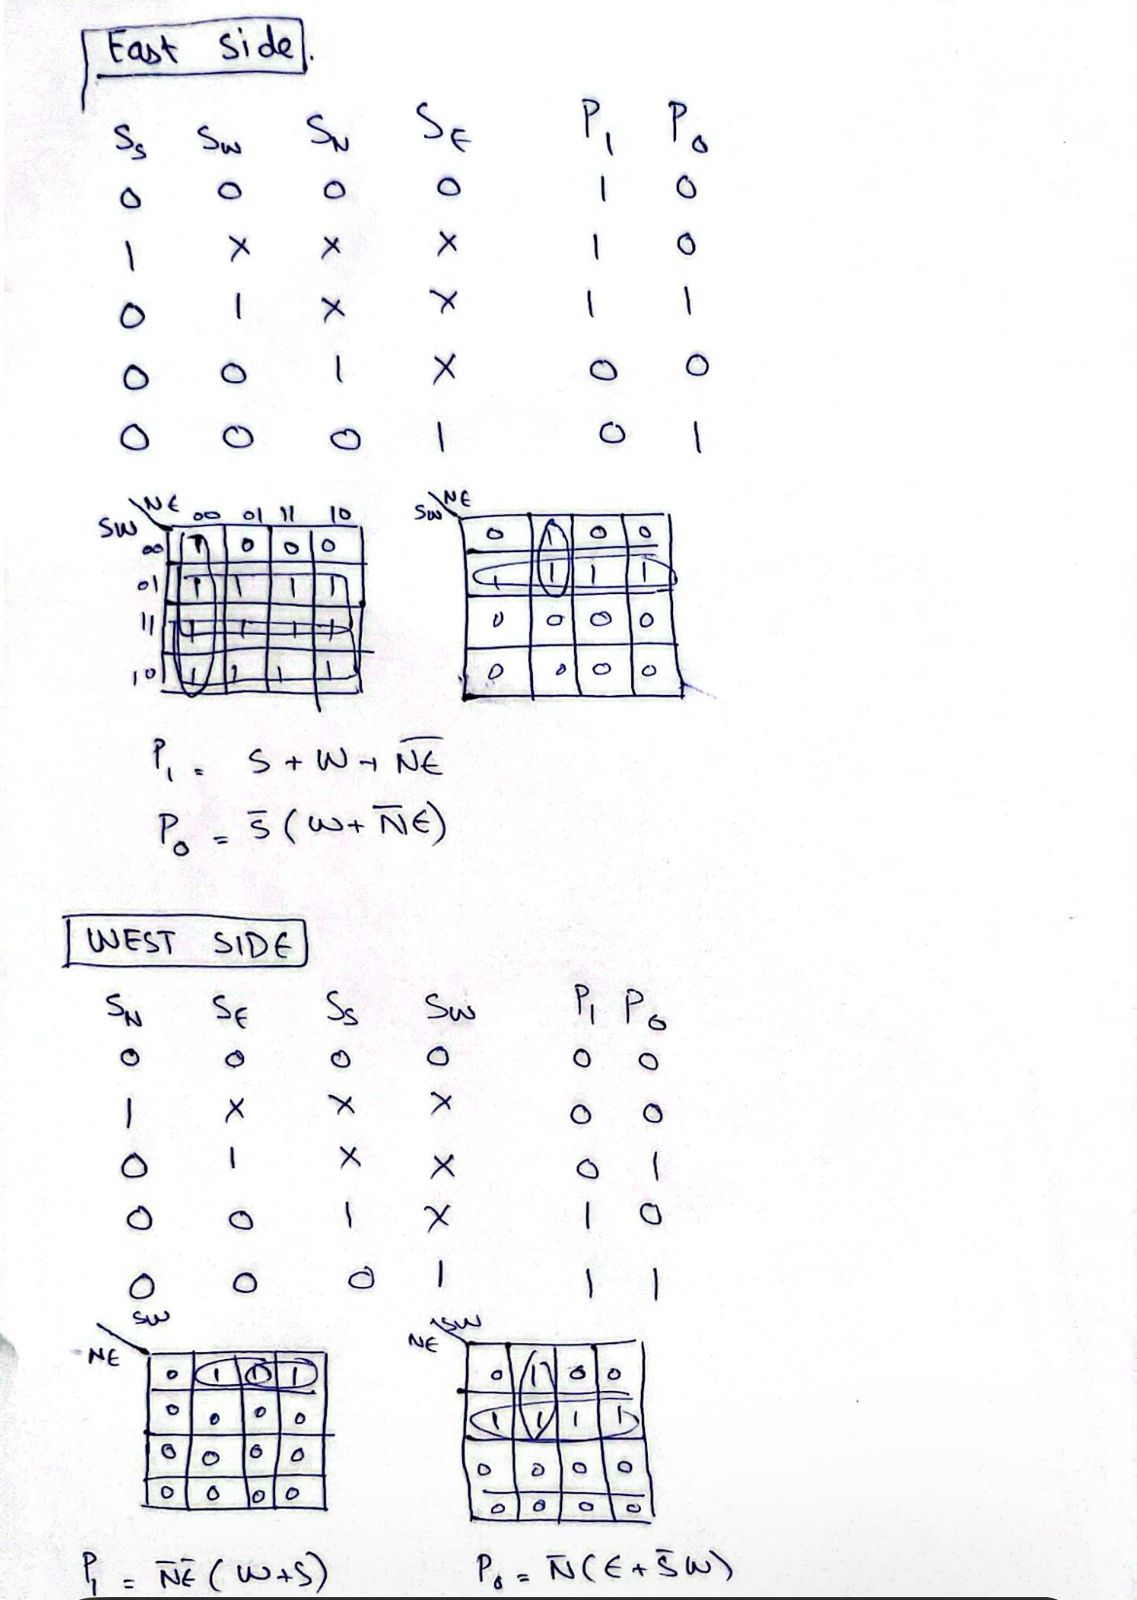 East side.
S_S S_W S_N S_E P_1 P_0
0 0 0 0 1 0
1 X X X 1 0
0 1 X X 1 1
0 0 1 X 0 0
0 0 0 1 0 1
NE 00 01 11 10
SW
00 1 0 0 0
01 1 1 1 1
11 1 1 1 1
10 1 1 1 1
NE
SW
0 1 0 0
1 1 1 1
0 0 0 0
0 0 0 0
P_1 = S + W + N̅E̅
P_0 = S̅ ( W + N̅E )
WEST SIDE
S_N S_E S_S S_W P_1 P_0
0 0 0 0 0 0
1 X X X 0 0
0 1 X X 0 1
0 0 1 X 1 0
0 0 0 1 1 1
SW
NE
0 1 1 1
0 0 0 0
0 0 0 0
0 0 0 0
SW
NE
0 1 0 0
1 1 1 1
0 0 0 0
0 0 0 0
P_1 = N̅E̅ ( W + S ) P_0 = N̅ ( E + S̅ W )